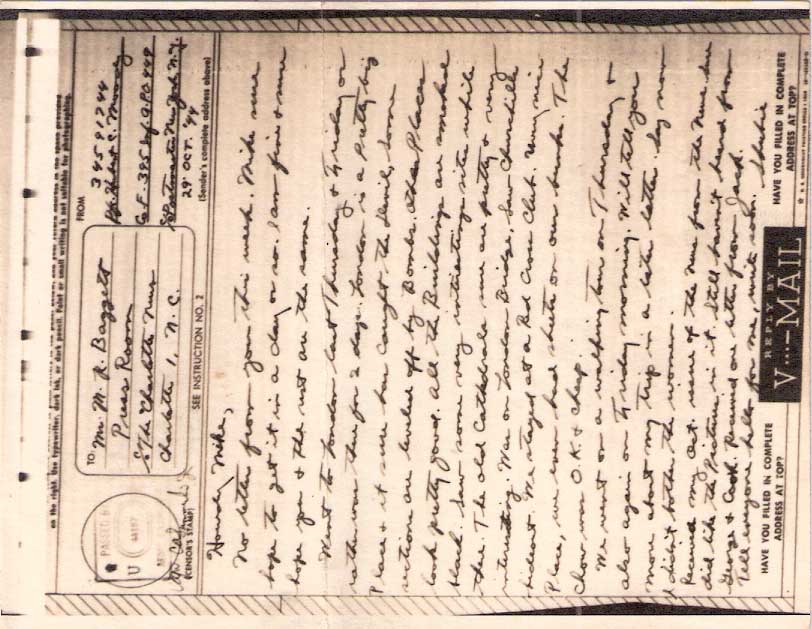 on the right. Use typewriter, dark ink, or dark pencil. Faint or small writing is not suitable for photographing.
TO
Mr. M. R. Bazzett
Press Room
% The Charlotte News
Charlotte 1, N.C.
FROM
34591744
Pfc. Hubert C. Moody
Co. F. 395 Inf. A.P.O 449
% Postmaster New York N.Y.
29 OCT. '44
(Sender's complete address above)
PASSED
U
44187
(CENSOR'S STAMP)
SEE INSTRUCTION NO. 2
Howdy Mike,
No letter from you this week. Mike sure
hope to get it in a day or so. I am fine & sure
hope you & the rest are the same.
Went to London last Thursday & Friday or
rather was there for 2 days. London is a Pretty big
Place & it sure has caught the Devil, some
sections are leveled off by Bombs. Other Places
look pretty good. All the Buildings are smoked
black. Saw some very interesting sites while
there. The old Cathedrals sure are pretty & very
interesting. Was on London Bridge, Saw Churchills
hideout. We stayed at a Red Cross Club. Very nice
Place, we even had sheets on our bunks. The
Chow was O.K & cheap.
We went on a walking tour on Thursday &
also again on Friday morning. Will tell you
more about my trip in a later letter. by now
I didn't bother the women.
Received my Oct. issue of the News from the News. Sure
did like the Picture in it. Still haven't heard from
George & Cook. Received one letter from Jack.
Tell everyone hello for me, write soon.
HAVE YOU FILLED IN COMPLETE
ADDRESS AT TOP?
REPLY BY
V···—MAIL
HAVE YOU FILLED IN COMPLETE
ADDRESS AT TOP?